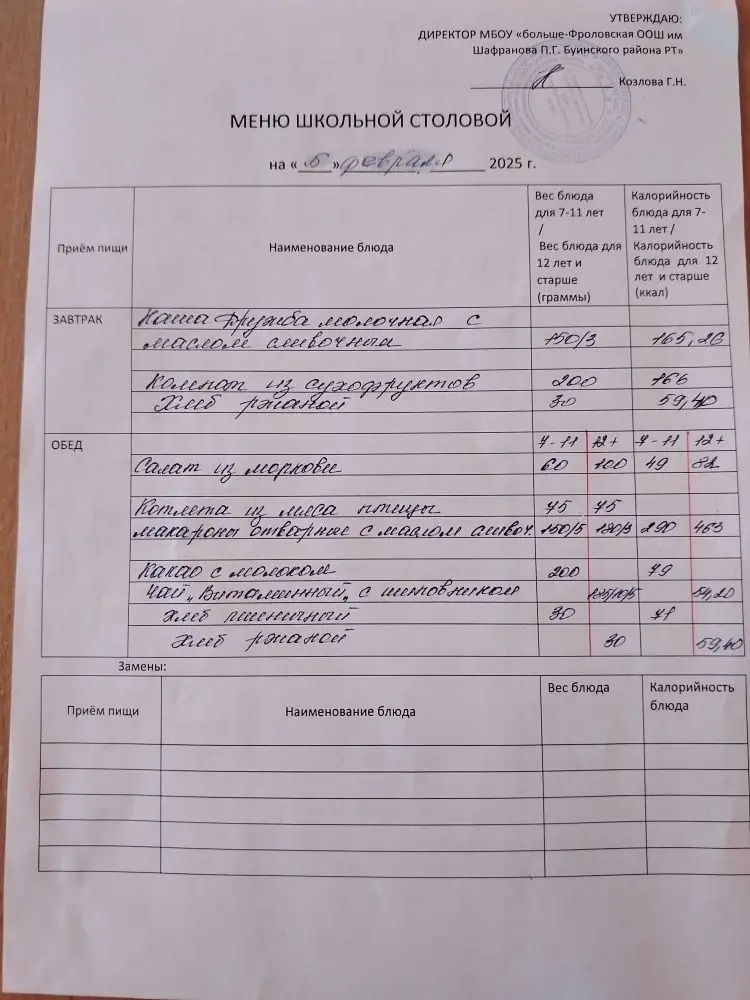 УТВЕРЖДАЮ:
ДИРЕКТОР МБОУ «больше-Фроловская ООШ им
Шафранова П.Г. Буинского района РТ»
Козлова Г.Н.
МЕНЮ ШКОЛЬНОЙ СТОЛОВОЙ
на «5» февраля 2025 г.
Приём пищи Наименование блюда Вес блюда для 7-11 лет / Вес блюда для 12 лет и старше (граммы) Калорийность блюда для 7-11 лет / Калорийность блюда для 12 лет и старше (ккал)
ЗАВТРАК Каша Дружба молочная с
маслом сливочным 150/3 165,26
Компот из сухофруктов 200 166
Хлеб ржаной 30 59,40
ОБЕД 7-11 12+ 7-11 12+
Салат из моркови 60 100 49 82
Котлета из мяса птицы 75 75
макароны отварные с маслом сливоч. 150/5 180/5 290 463
Какао с молоком 200 79
Чай „Витаминный„ с шиповником 54,20
Хлеб пшеничный 30 71
Хлеб ржаной 30 59,40
Замены:
Приём пищи Наименование блюда Вес блюда Калорийность блюда